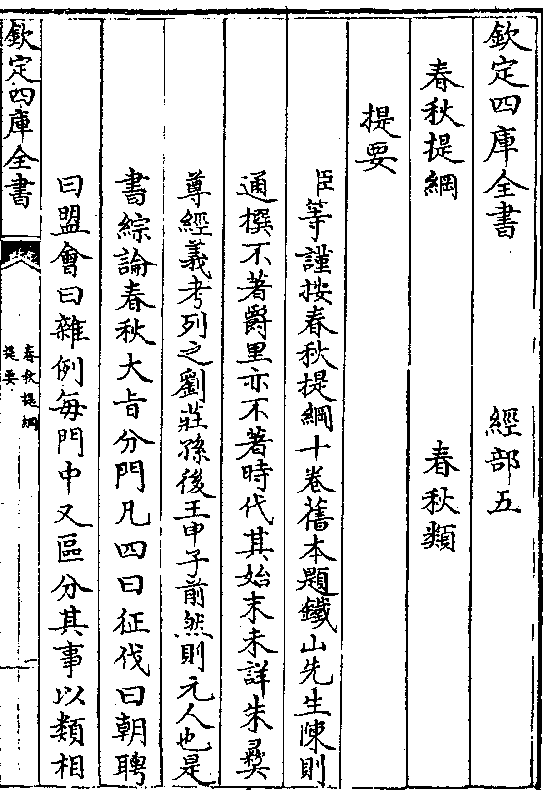 欽定四庫全書 經部五
春秋提綱 春秋類
提要
臣等謹按春秋提綱十卷舊本題鐵山先生陳則
通撰不著爵里亦不著時代其始末未詳朱彞
尊經義考列之劉莊孫後王申子前然則元人也是
書綜論春秋大旨分門凡四曰征伐曰朝聘
曰盟會曰雜例每門中又區分其事以類相
欽定四庫全書
春秋提綱
提要